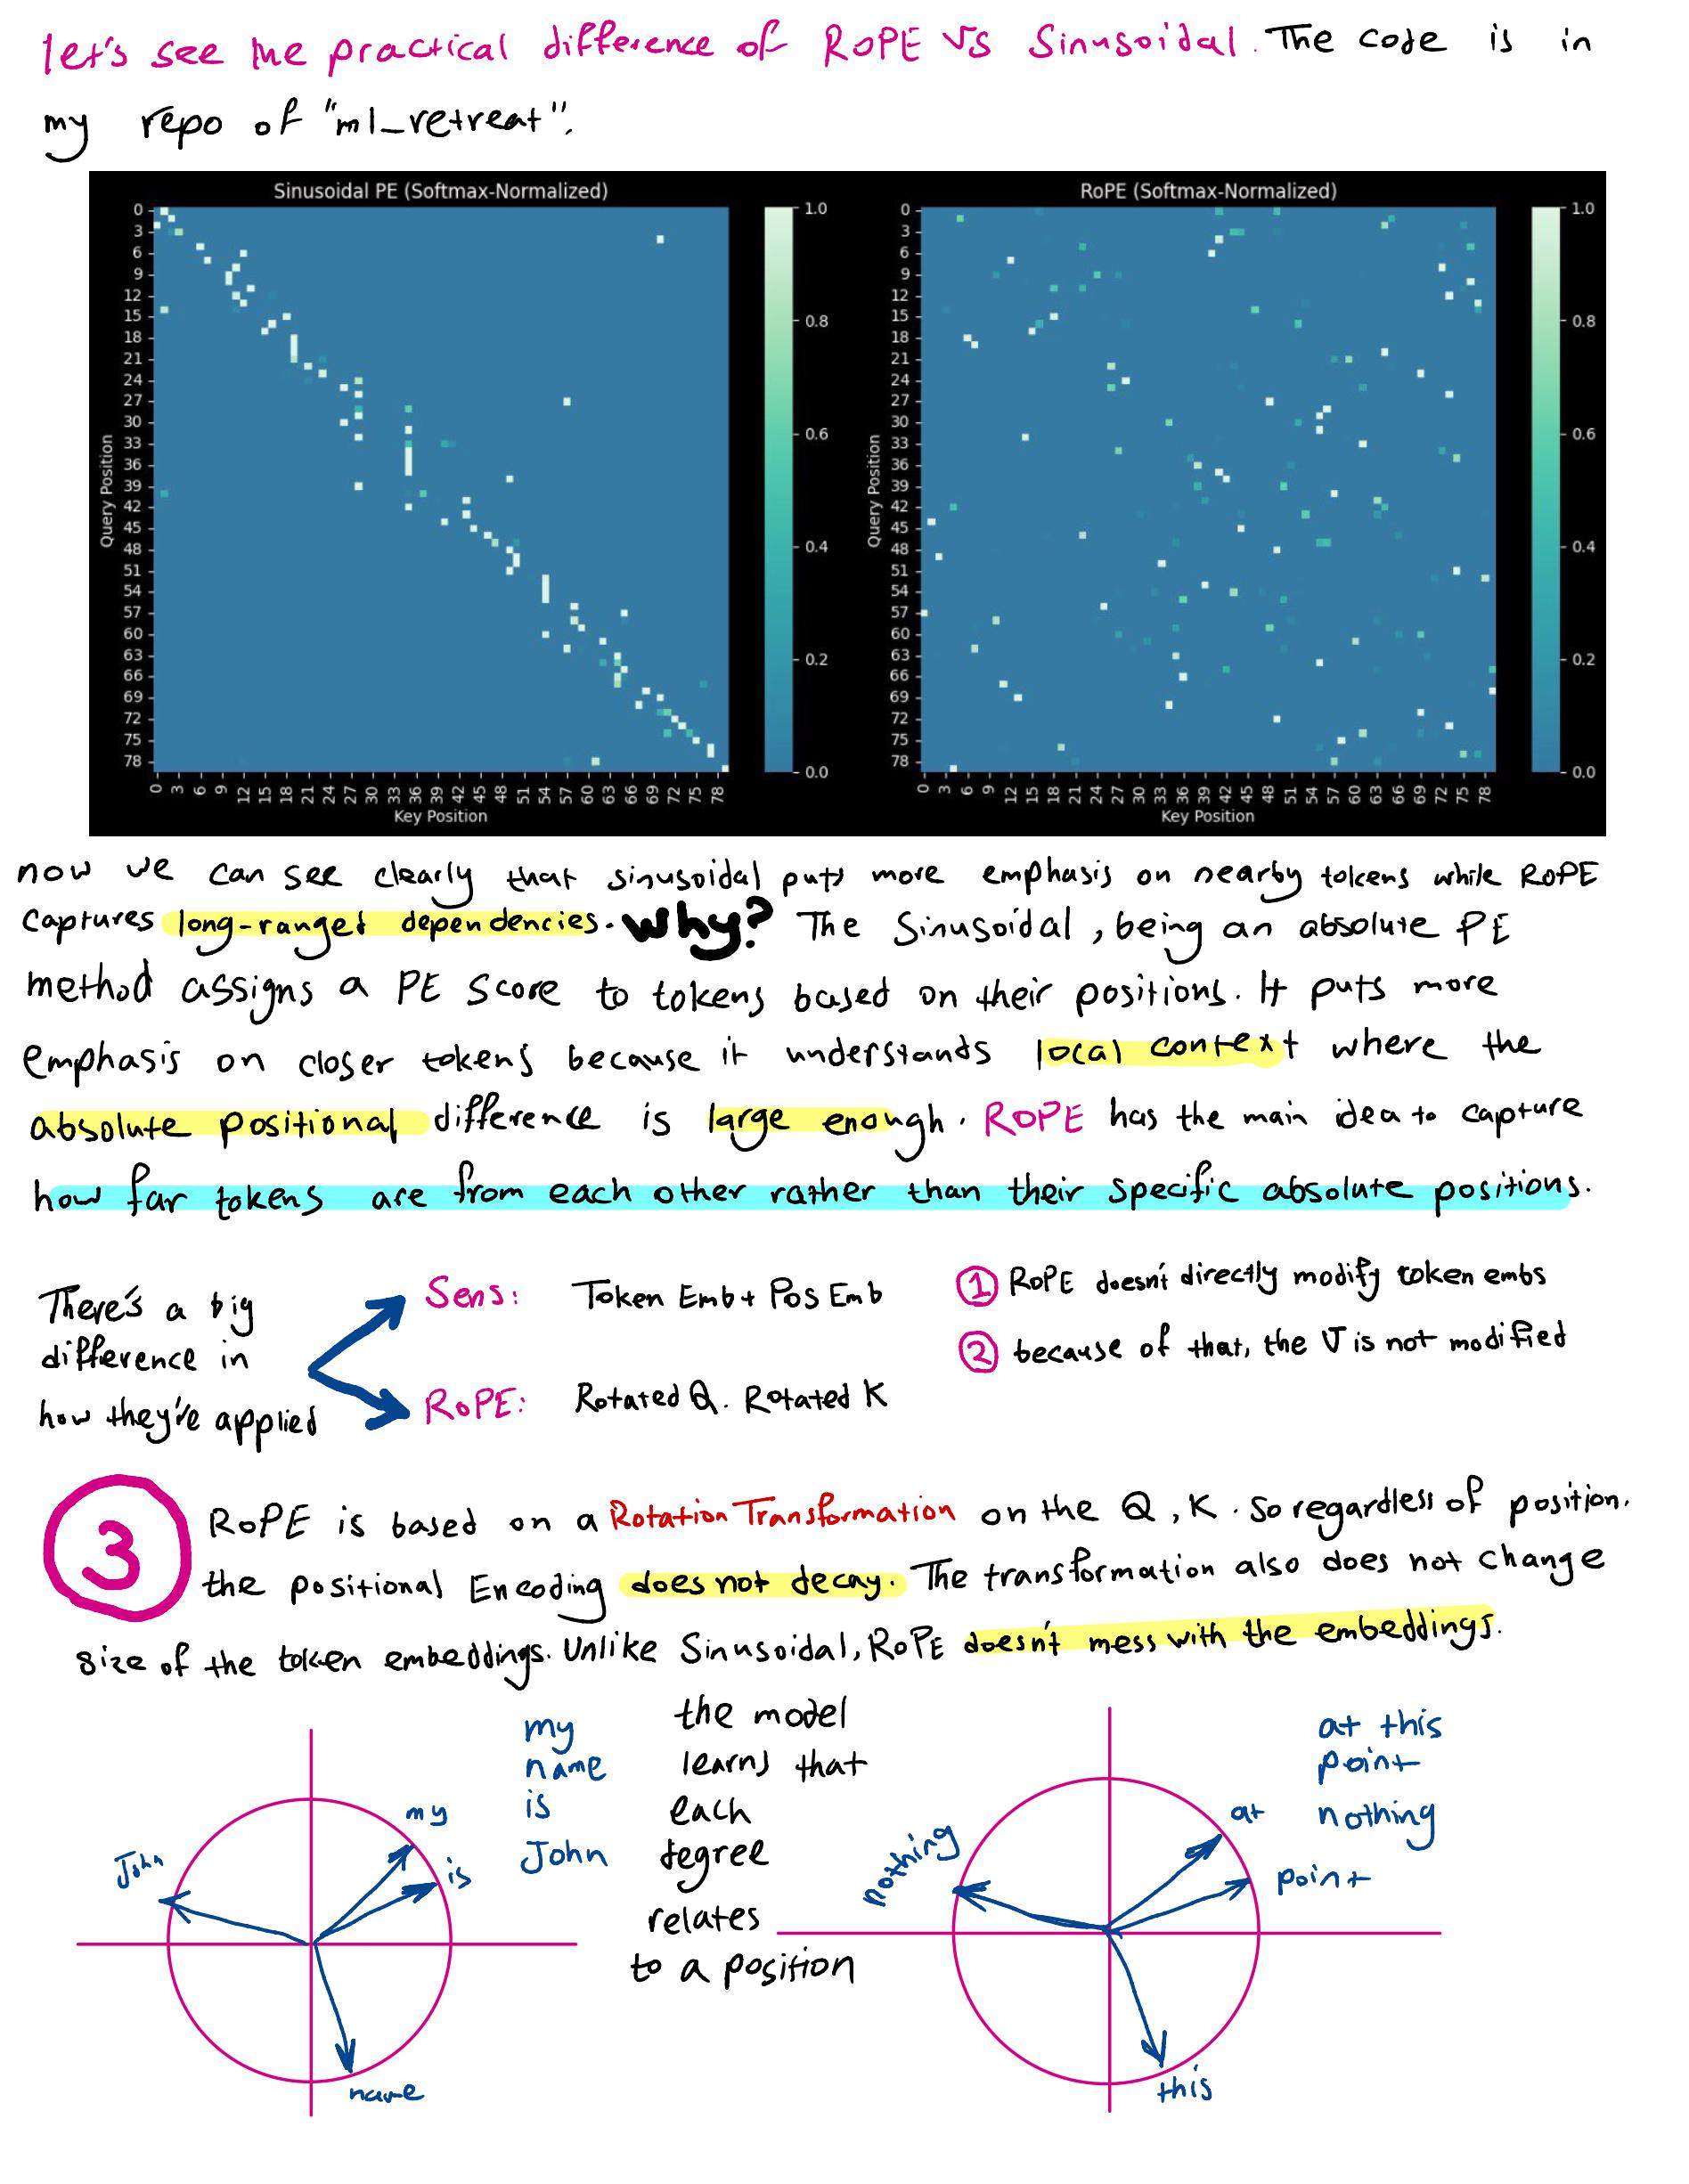 let's see the practical difference of ROPE vs Sinusoidal. The code is in
my repo of "ml_retreat".
Sinusoidal PE (Softmax-Normalized)
0
3
6
9
12
15
18
21
24
27
30
33
36
39
42
45
48
51
54
57
60
63
66
69
72
75
78
Query Position
0 3 6 9 12 15 18 21 24 27 30 33 36 39 42 45 48 51 54 57 60 63 66 69 72 75 78
Key Position
1.0
0.8
0.6
0.4
0.2
0.0
RoPE (Softmax-Normalized)
0
3
6
9
12
15
18
21
24
27
30
33
36
39
42
45
48
51
54
57
60
63
66
69
72
75
78
Query Position
0 3 6 9 12 15 18 21 24 27 30 33 36 39 42 45 48 51 54 57 60 63 66 69 72 75 78
Key Position
1.0
0.8
0.6
0.4
0.2
0.0
now we can see clearly that sinusoidal puts more emphasis on nearby tokens while ROPE
captures long-ranged dependencies. Why? The Sinusoidal, being an absolute PE
method assigns a PE score to tokens based on their positions. It puts more
emphasis on closer tokens because it understands local context where the
absolute positional difference is large enough. ROPE has the main idea to capture
how far tokens are from each other rather than their specific absolute positions.
There's a big
difference in
how they're applied
Sens: Token Emb + Pos Emb
RoPE: Rotated Q. Rotated K
1 ROPE doesn't directly modify token embs
2 because of that, the V is not modified
3 RoPE is based on a Rotation Transformation on the Q, K. So regardless of position.
the positional Encoding does not decay. The transformation also does not change
size of the token embeddings. Unlike Sinusoidal, RoPE doesn't mess with the embeddings.
John
my
is
name
my
name
is
John
the model
learns that
each
degree
relates
to a position
nothing
at
point
this
at this
point
nothing